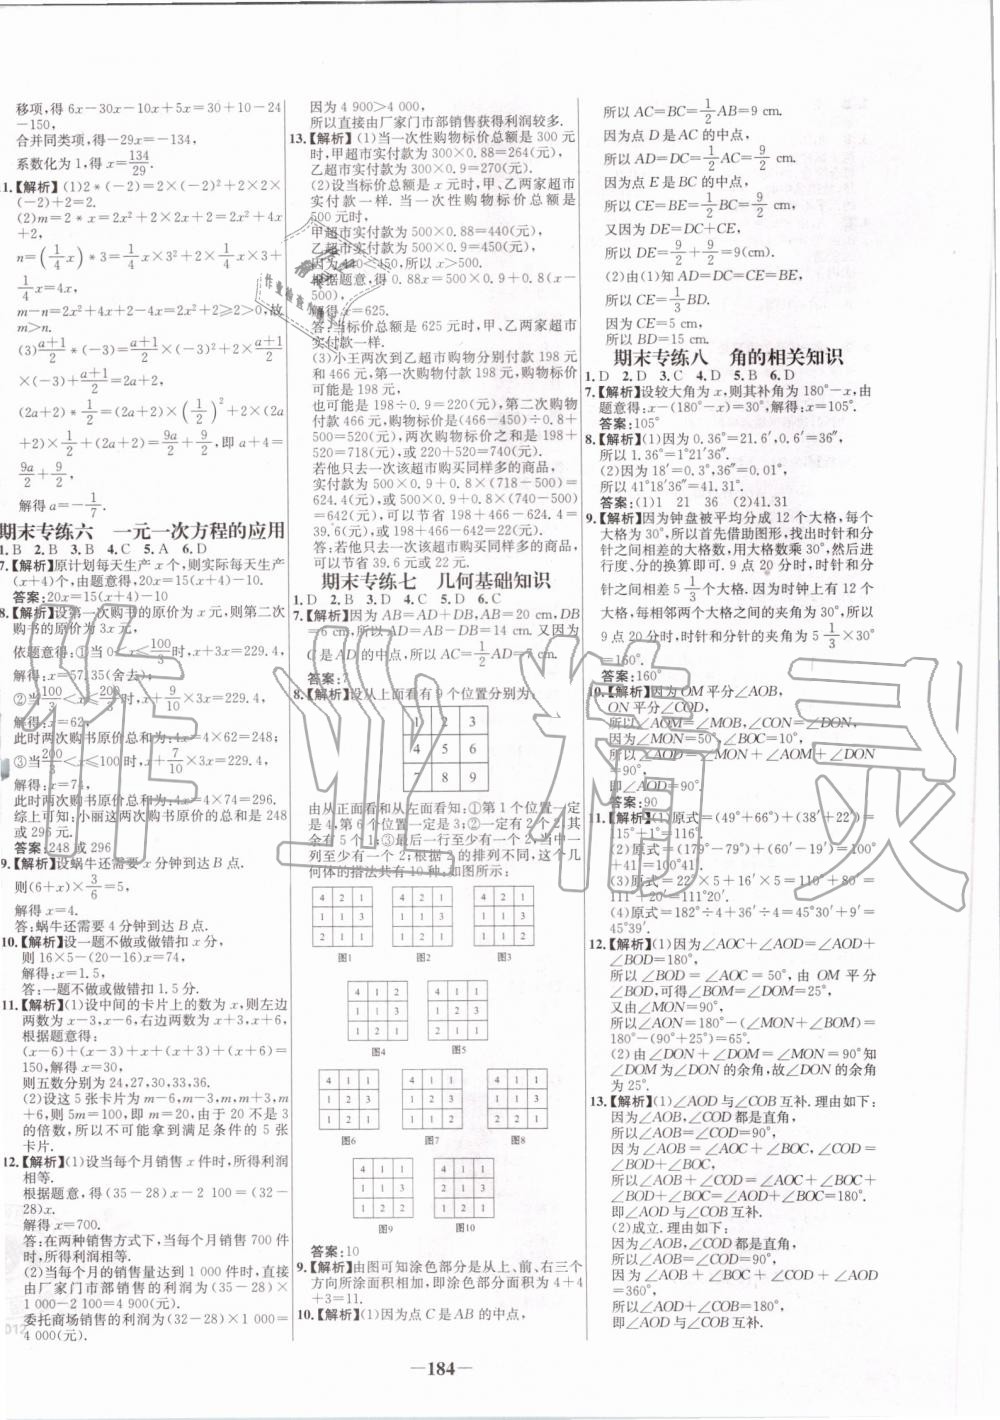 移项,得 6x-30x-10x+5x=30+10-24
-150,
合并同类项,得-29x=-134,
系数化为 1,得 x=134/29.
1.【解析】(1)2*(-2)=2×(-2)²+2×2×
(-2)+2=2.
(2)m=2*x=2x²+2×2x+2=2x²+4x
+2,
n=(1/4 x)*3=1/4 x×3²+2×1/4 x×3+
1/4 x=4x,
m-n=2x²+4x+2-4x=2x²+2≥2>0,故
m>n.
(3)(a+1)/2*(-3)=(a+1)/2×(-3)²+2×(a+1)/2
×(-3)+(a+1)/2=2a+2,
(2a+2)*1/2=(2a+2)×(1/2)²+2×(2a
+2)×1/2+(2a+2)=9a/2+9/2,即 a+4=
9a/2+9/2,
解得 a=-1/7.
期末专练六 一元一次方程的应用
1.B 2.B 3.B 4.C 5.A 6.D
7.【解析】原计划每天生产 x 个,则实际每天生产
(x+4)个,由题意得,20x=15(x+4)-10.
答案:20x=15(x+4)-10
8.【解析】设第一次购书的原价为 x 元,则第二次
购书的原价为 3x 元,
依题意得:①当 0<x≤100/3时,x+3x=229.4,
解得:x=57.35(舍去);
②当100/3<x≤200/3时,x+9/10×3x=229.4,
解得:x=62,
此时两次购书原价总和为:4x=4×62=248;
③当200/3<x≤100 时,x+7/10×3x=229.4,
解得:x=74,
此时两次购书原价总和为:4x=4×74=296.
综上可知:小丽这两次购书原价的总和是 248
或 296 元.
答案:248 或 296
9.【解析】设蜗牛还需要 x 分钟到达 B 点.
则(6+x)×3/6=5,
解得 x=4.
答:蜗牛还需要 4 分钟到达 B 点.
10.【解析】设一题不做或做错扣 x 分,
则 16×5-(20-16)x=74,
解得:x=1.5,
答:一题不做或做错扣 1.5 分.
11.【解析】(1)设中间的卡片上的数为 x,则左边
两数为 x-3,x-6,右边两数为 x+3,x+6,
根据题意得:
(x-6)+(x-3)+x+(x+3)+(x+6)=
150,解得 x=30,
则五数分别为 24,27,30,33,36.
(2)设这 5 张卡片为 m-6,m-3,m,m+3,m
+6,则 5m=100,即 m=20,由于 20 不是 3
的倍数,所以不可能抽到满足条件的 5 张
卡片.
12.【解析】(1)设当每个月销售 x 件时,所得利润
相等.
根据题意,得(35-28)x-2 100=(32-
28)x.
解得 x=700.
答:在两种销售方式下,当每个月销售 700 件
时,所得利润相等.
(2)当每个月的销售量达到 1 000 件时,直接
由厂家门市部销售的利润为(35-28)×
1 000-2 100=4 900(元),
委托商场销售的利润为(32-28)×1 000=
4 000(元).
因为 4 900>4 000,
所以直接由厂家门市部销售获得利润较多.
13.【解析】(1)当一次性购物标价总额是 300 元
时,甲超市实付款为 300×0.88=264(元),
乙超市实付款为 300×0.9=270(元).
(2)设当标价总额是 x 元时,甲、乙两家超市
实付款一样. 当一次性购物标价总额是
500 元时,
甲超市实付款为 500×0.88=440(元),
乙超市实付款为 500×0.9=450(元),
因为 440<450,所以 x>500.
根据题意,得 0.88x=500×0.9+0.8(x-
500),
解得 x=625.
答:当标价总额是 625 元时,甲、乙两家超市
实付款一样.
(3)小王两次到乙超市购物分别付款 198 元
和 466 元,第一次购物付款 198 元,购物标价
可能是 198 元,
也可能是 198÷0.9=220(元),第二次购物
付款 466 元,购物标价是(466-450)÷0.8+
500=520(元),两次购物标价之和是 198+
520=718(元),或 220+520=740(元).
若他只去一次该超市购买同样多的商品,
实付款为 500×0.9+0.8×(718-500)=
624.4(元),或 500×0.9+0.8×(740-500)
=642(元),可以节省 198+466-624.4=
39.6(元),或 198+466-642=22(元).
答:若他只去一次该超市购买同样多的商品,
可以节省 39.6 元或 22 元.
期末专练七 几何基础知识
1.D 2.B 3.D 4.C 5.D 6.C
7.【解析】因为 AB=AD+DB,AB=20 cm,DB
=6 cm,所以 AD=AB-DB=14 cm. 又因为
C 是 AD 的中点,所以 AC=1/2AD=7 cm.
答案:7
8.【解析】设从上面看有 9 个位置分别为:
1 2 3
4 5 6
7 8 9
由从正面看和从左面看知:①第 1 个位置一定
是 4,第 6 个位置一定是 3;②一定有 2 个 2,其
余有 5 个 1;③最后一行至少有一个 2,当中一
列至少有一个 2;根据 2 的排列不同,这个几
何体的搭法共有 10 种:如图所示:
4 2 1 4 2 1 4 2 1
1 1 3 1 1 3 1 1 3
2 1 1 1 2 1 1 1 2
图1 图2 图3
4 1 2 4 1 1
1 1 3 1 2 3
1 2 1 1 2 1
图4 图5
4 1 1 4 1 1 4 1 1
1 2 3 1 2 3 2 1 3
2 1 1 1 1 2 1 2 1
图6 图7 图8
4 1 1 4 1 1
1 1 3 1 1 3
2 2 1 1 2 2
图9 图10
答案:10
9.【解析】由图可知涂色部分是从上、前、右三个
方向所涂面积相加,即涂色部分面积为 4+4
+3=11.
10.【解析】(1)因为点 C 是 AB 的中点,
所以 AC=BC=1/2AB=9 cm.
因为点 D 是 AC 的中点,
所以 AD=DC=1/2AC=9/2 cm.
因为点 E 是 BC 的中点,
所以 CE=BE=1/2BC=9/2 cm,
又因为 DE=DC+CE,
所以 DE=9/2+9/2=9(cm).
(2)由(1)知 AD=DC=CE=BE,
所以 CE=1/3BD.
因为 CE=5 cm,
所以 BD=15 cm.
期末专练八 角的相关知识
1.D 2.D 3.C 4.D 5.B 6.D
7.【解析】设较大角为 x,则其补角为 180°-x,由
题意得:x-(180°-x)=30°,解得:x=105°.
答案:105°
8.【解析】(1)因为 0.36°=21.6′,0.6′=36″,
所以 1.36°=1°21′36″.
(2)因为 18′=0.3°,36″=0.01°,
所以 41°18′36″=41.31°.
答案:(1)1 21 36 (2)41.31
9.【解析】因为钟盘被平均分成 12 个大格,每个
大格为 30°,所以首先借助图形,找出时针和分
针之间相差的大格数,用大格数乘 30°,然后进行
度、分的换算即可. 9 点 20 分时,时针和分
针之间相差的大格数为 5 1/3 个.因为钟面上 12 个
大格,每相邻两个大格之间的夹角为 30°,所以
9 点 20 分时,时针和分针的夹角为 5 1/3×30°
=160°.
答案:160°
10.【解析】因为 OM 平分∠AOB,
ON 平分∠COD,
所以∠AOM=∠MOB,∠CON=∠DON,
因为∠MON=50°,∠BOC=10°,
所以∠AOD=∠MON+∠AOM+∠DON
=90°.
答案:90
11.【解析】(1)原式=(49°+66°)+(38′+22′)=
115°+1°=116°.
(2)原式=(179°-79°)+(60′-19′)=100°
+41′=100°41′.
(3)原式=22°×5+16′×5=110°+80′=
111°+20′=111°20′.
(4)原式=182°÷4+36′÷4=45°30′+9′=
45°39′.
12.【解析】(1)因为∠AOC+∠AOD=∠AOD+
∠BOD=180°,
所以∠BOD=∠AOC=50°,由 OM 平分
∠BOD,可得∠BOM=∠DOM=25°,
又由∠MON=90°,
所以∠AON=180°-(∠MON+∠BOM)=
180°-(90°+25°)=65°.
(2)由∠DON+∠DOM=∠MON=90°知
∠DOM 为∠DON 的余角,故∠DON 的余角
为 25°.
13.【解析】(1)∠AOD 与∠COB 互补. 理由如下:
因为∠AOB,∠COD 都是直角,
所以∠AOB=∠COD=90°,
因为∠AOB=∠AOC+∠BOC,∠COD=
∠BOD+∠BOC,
所以∠AOB+∠COD=∠AOC+∠BOC+
∠BOD+∠BOC=∠AOD+∠BOC=180°.
即∠AOD 与∠COB 互补.
(2)成立. 理由如下:
因为∠AOB,∠COD 都是直角,
所以∠AOB=∠COD=90°,
因为∠AOB+∠BOC+∠COD+∠AOD
=360°,
所以∠AOD+∠COB=180°,
即∠AOD 与∠COB 互补.
—184—
作业精灵
作业检查